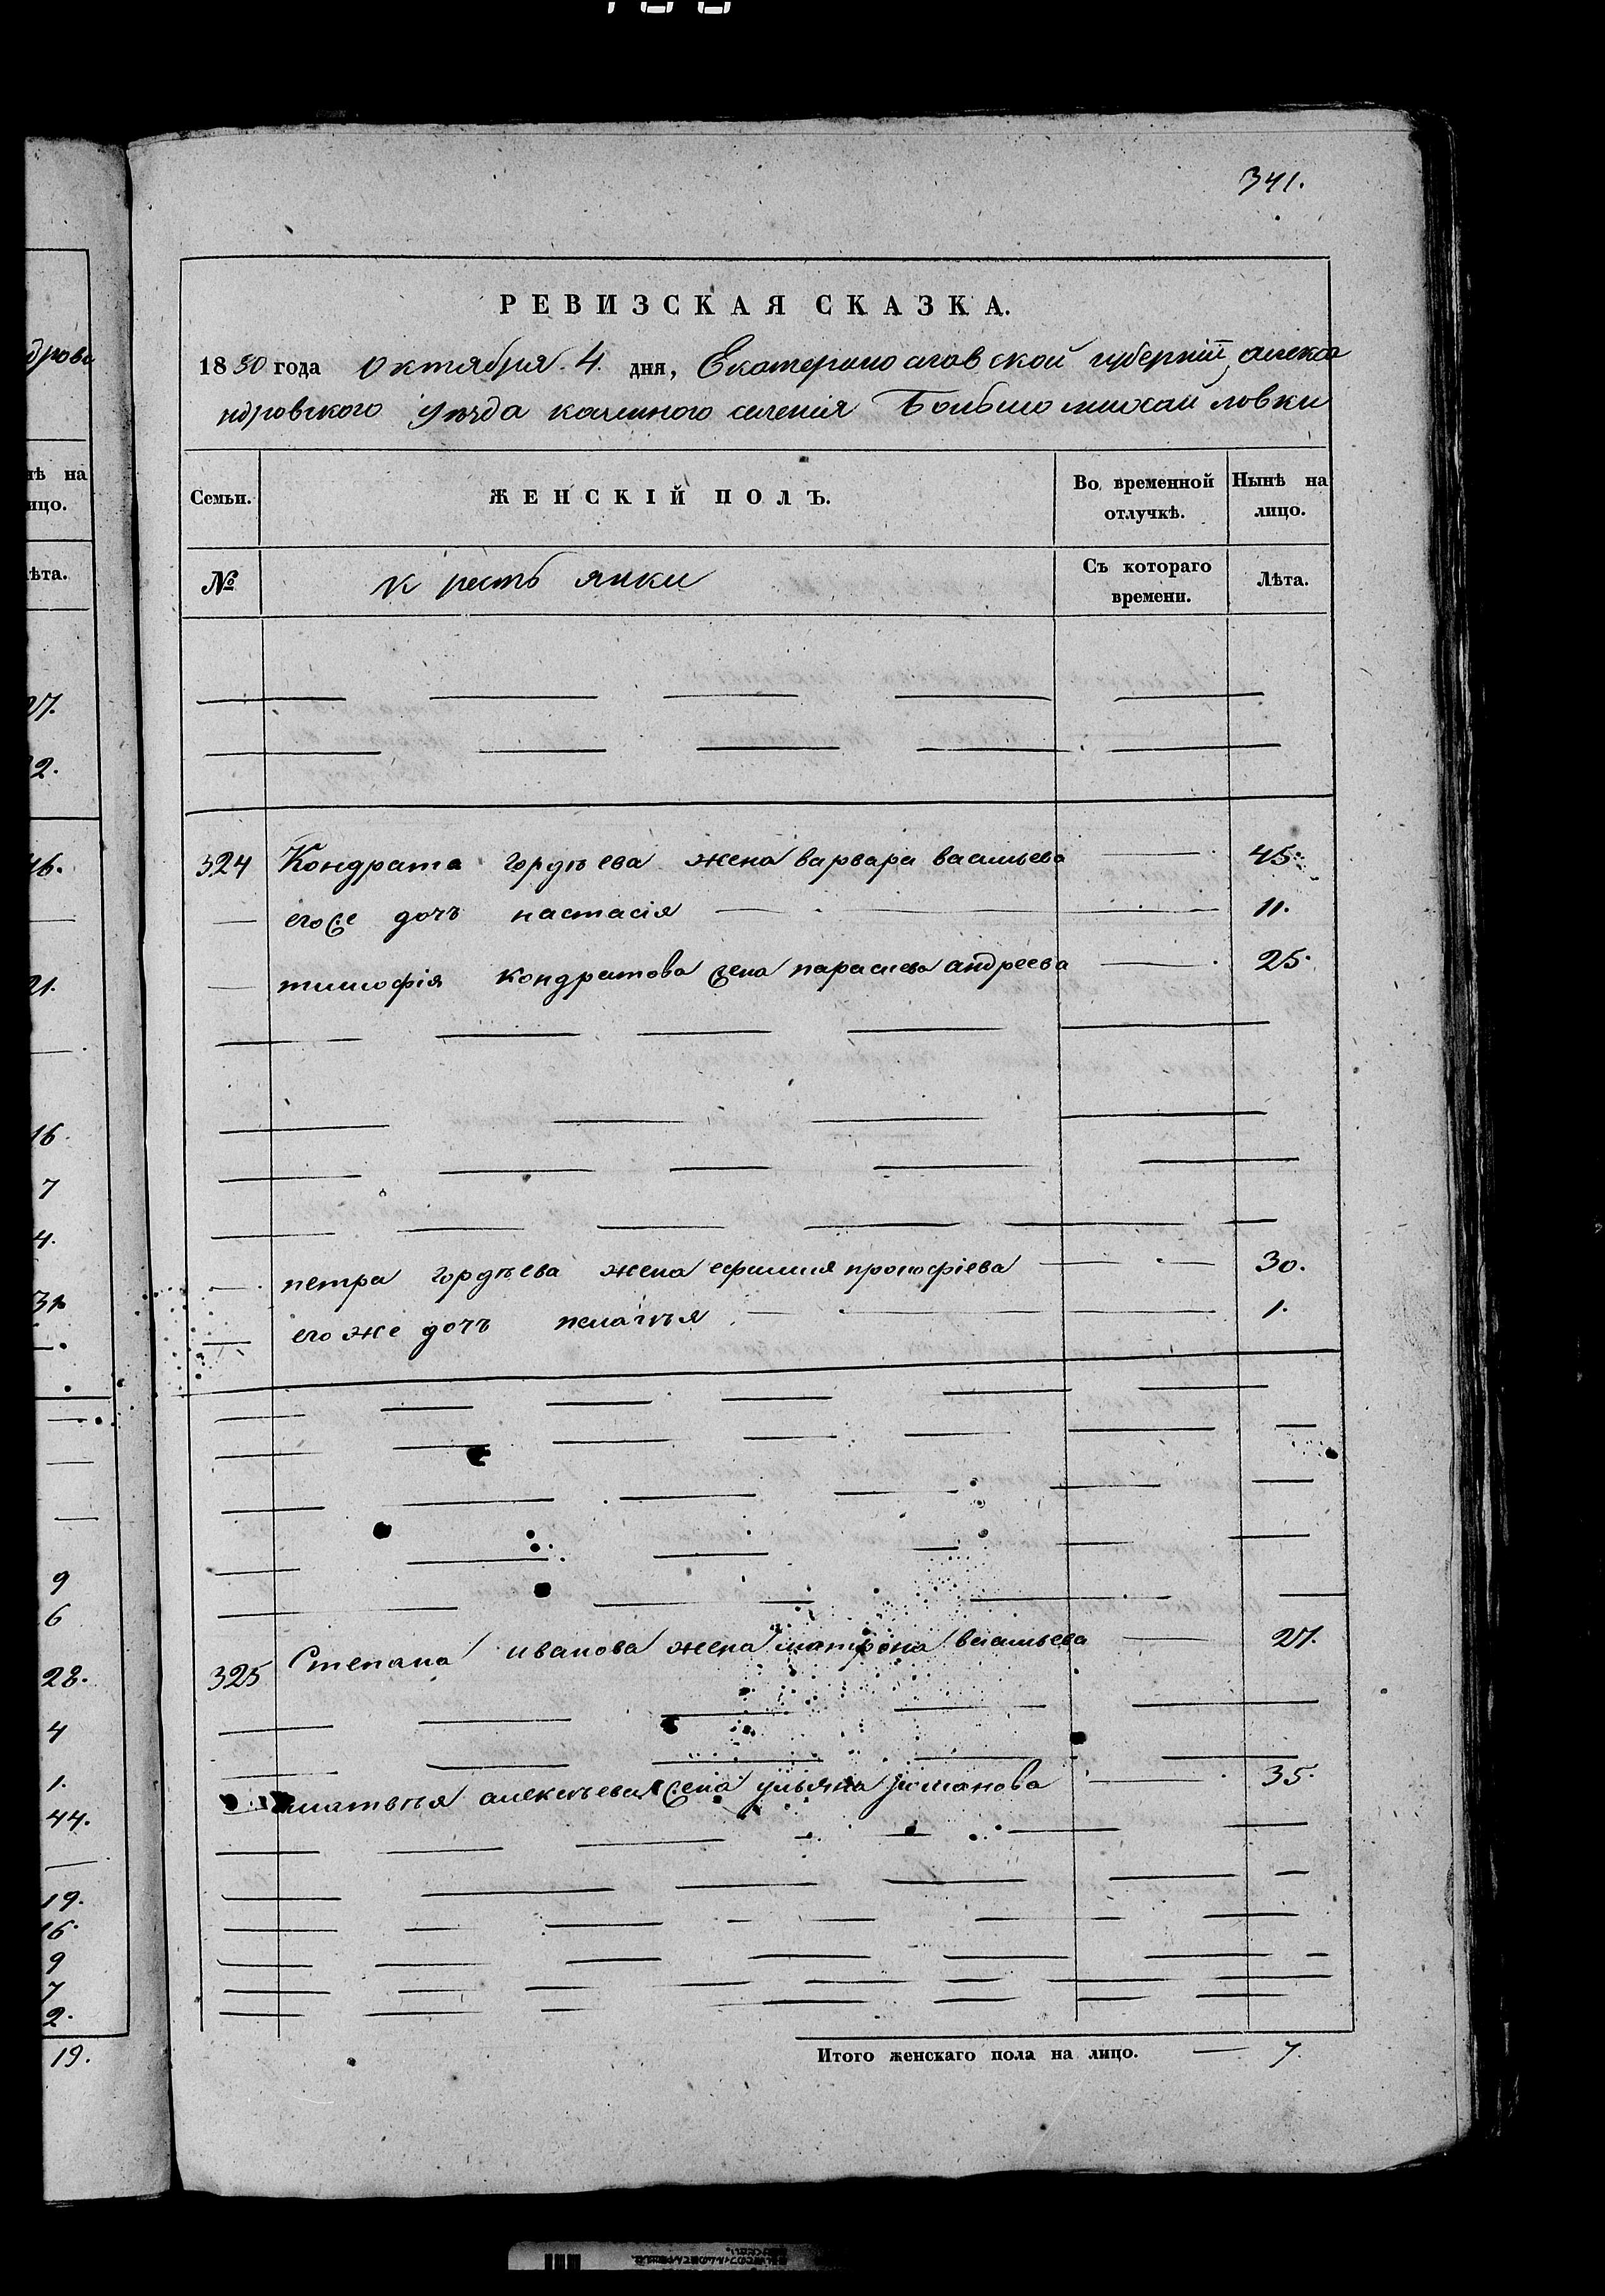 341.
РЕВИЗСКАЯ СКАЗКА.
1850 года октября 4. дня, Екатеринославской губернїи, алекса
ндровского уѣзда казенного селенія Большомихайловки
Семьи.
ЖЕНСКІЙ ПОЛЪ.
Во временной отлучкѣ.
Нынѣ на лицо.
№
крестьянки
Съ котораго времени.
Лѣта.
324 Кондрата гордѣева жена варвара васильева 45.
его же дочь настасія 11.
тимофія кондратова жена параскева андреева 25.
петра гордѣева жена ефимия прокофіева 30.
его же дочь пелагѣя 1.
325 Степана иванова жена матрона васильева 27.
матвѣя алексѣева жена ульяна романова 35.
Итого женскаго пола на лицо. 7.
дрова
нѣ на
ицо.
ѣта.
27.
2.
46.
21.
16.
7
4.
31.
9
6
28.
4
1.
44.
19.
16.
9
7
2.
19.